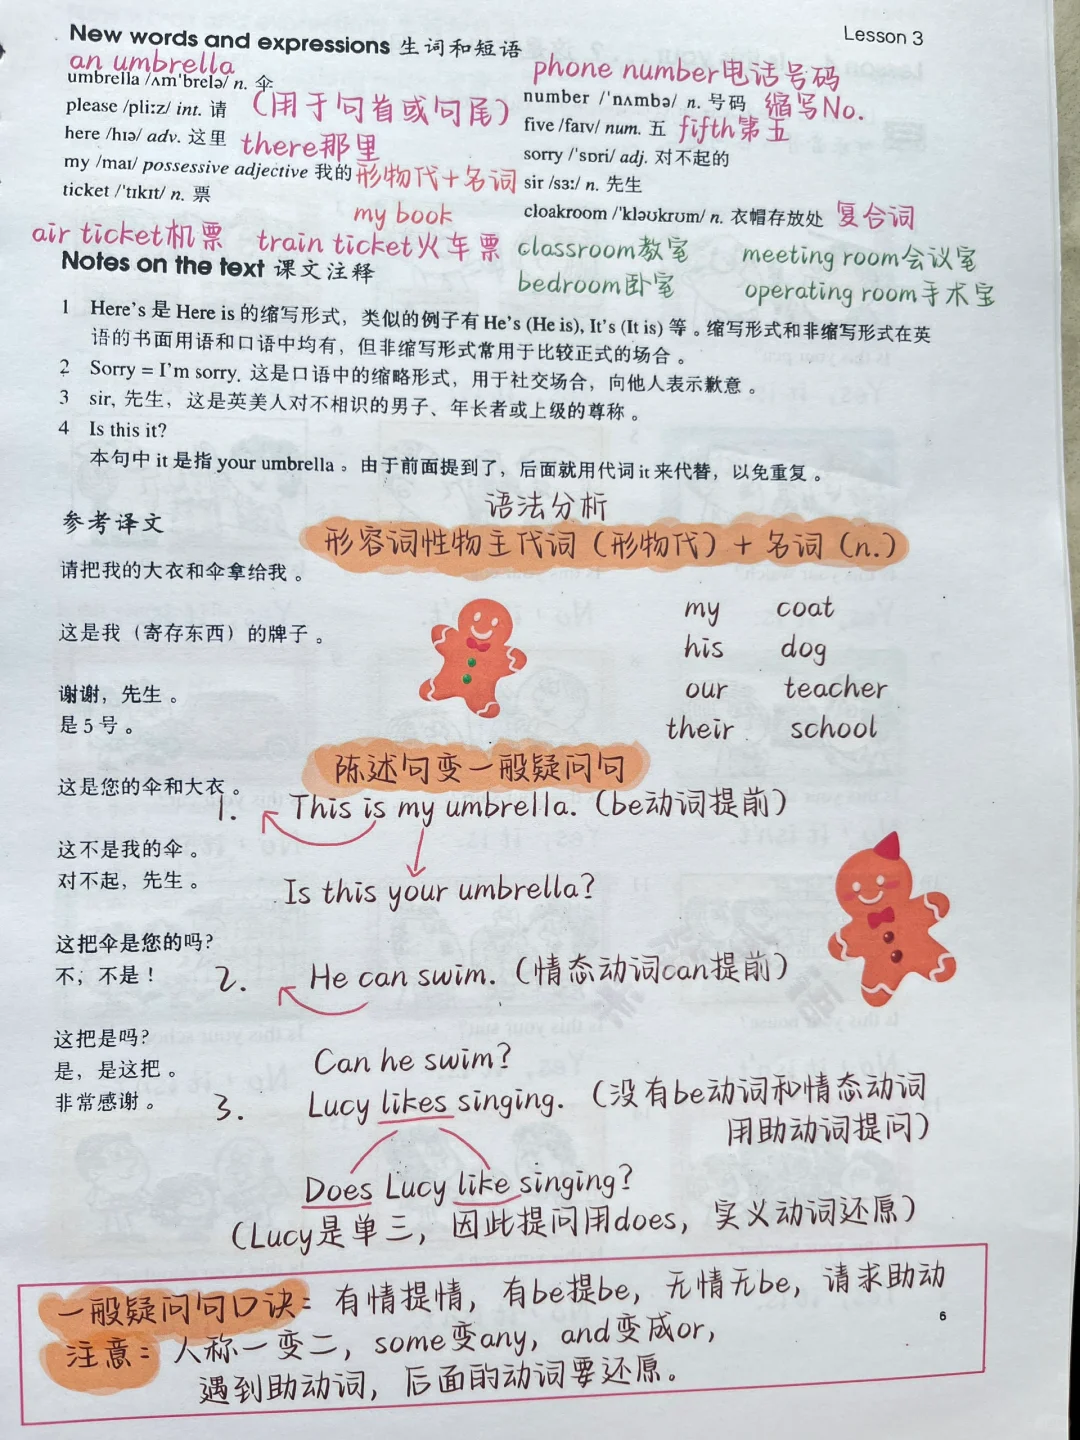 New words and expressions 生词和短语
Lesson 3
an umbrella
umbrella /ʌm'brelə/ n. 伞
please /pli:z/ int. 请 (用于句首或句尾)
here /hɪə/ adv. 这里 there那里
my /maɪ/ possessive adjective 我的 形物代+名词
my book
ticket /'tɪkɪt/ n. 票
air ticket机票 train ticket火车票
phone number电话号码
number /'nʌmbə/ n. 号码 缩写No.
five /faɪv/ num. 五 fifth第五
sorry /'sɒri/ adj. 对不起的
sir /sɜ:/ n. 先生
cloakroom /'kləʊkrʊm/ n. 衣帽存放处 复合词
classroom教室 meeting room会议室
bedroom卧室 operating room手术室
Notes on the text 课文注释
1 Here's 是 Here is 的缩写形式，类似的例子有 He's (He is), It's (It is) 等。缩写形式和非缩写形式在英
语的书面用语和口语中均有，但非缩写形式常用于比较正式的场合。
2 Sorry = I'm sorry. 这是口语中的缩略形式，用于社交场合，向他人表示歉意。
3 sir, 先生，这是英美人对不相识的男子、年长者或上级的尊称。
4 Is this it?
本句中 it 是指 your umbrella。由于前面提到了，后面就用代词 it 来代替，以免重复。
参考译文
请把我的大衣和伞拿给我。
这是我（寄存东西）的牌子。
谢谢，先生。
是 5 号。
这是您的伞和大衣。
这不是我的伞。
对不起，先生。
这把伞是您的吗?
不，不是！
这把是吗?
是，是这把。
非常感谢。
语法分析
形容词性物主代词（形物代）+ 名词（n.）
my coat
his dog
our teacher
their school
陈述句变一般疑问句
1. This is my umbrella.（be动词提前）
Is this your umbrella?
2. He can swim.（情态动词can提前）
Can he swim?
3. Lucy likes singing.（没有be动词和情态动词
用助动词提问）
Does Lucy like singing?
（Lucy是单三，因此提问用does，实义动词还原）
一般疑问句口诀：有情提情，有be提be，无情无be，请求助动
注意：人称一变二，some变any，and变成or，
遇到助动词，后面的动词要还原。
6